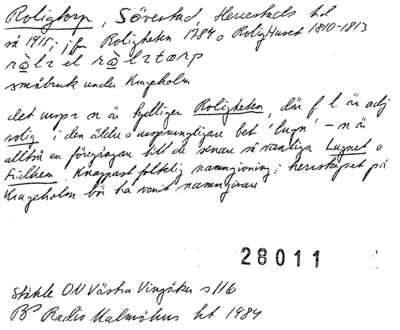 Roligtorp, Sövestad, Herrestads hd
så 1915; jfr Roligheten 1784 o RoligHuset 1810-1813
småbruk under Krageholm
det urspr n är tydligen Roligheten, där f l är adj
rolig i den äldre o ursprungligare bet 'lugn' – n är
alltså en föregångare till de senare så vanliga Lugnet o
Fridhem. Knappast folklig namngivning; herrskapet på
Krageholm bör ha varit namngivare
28011
Ståhle ON Västra Vingåker s 116
Radio Malmöhus ht 1984